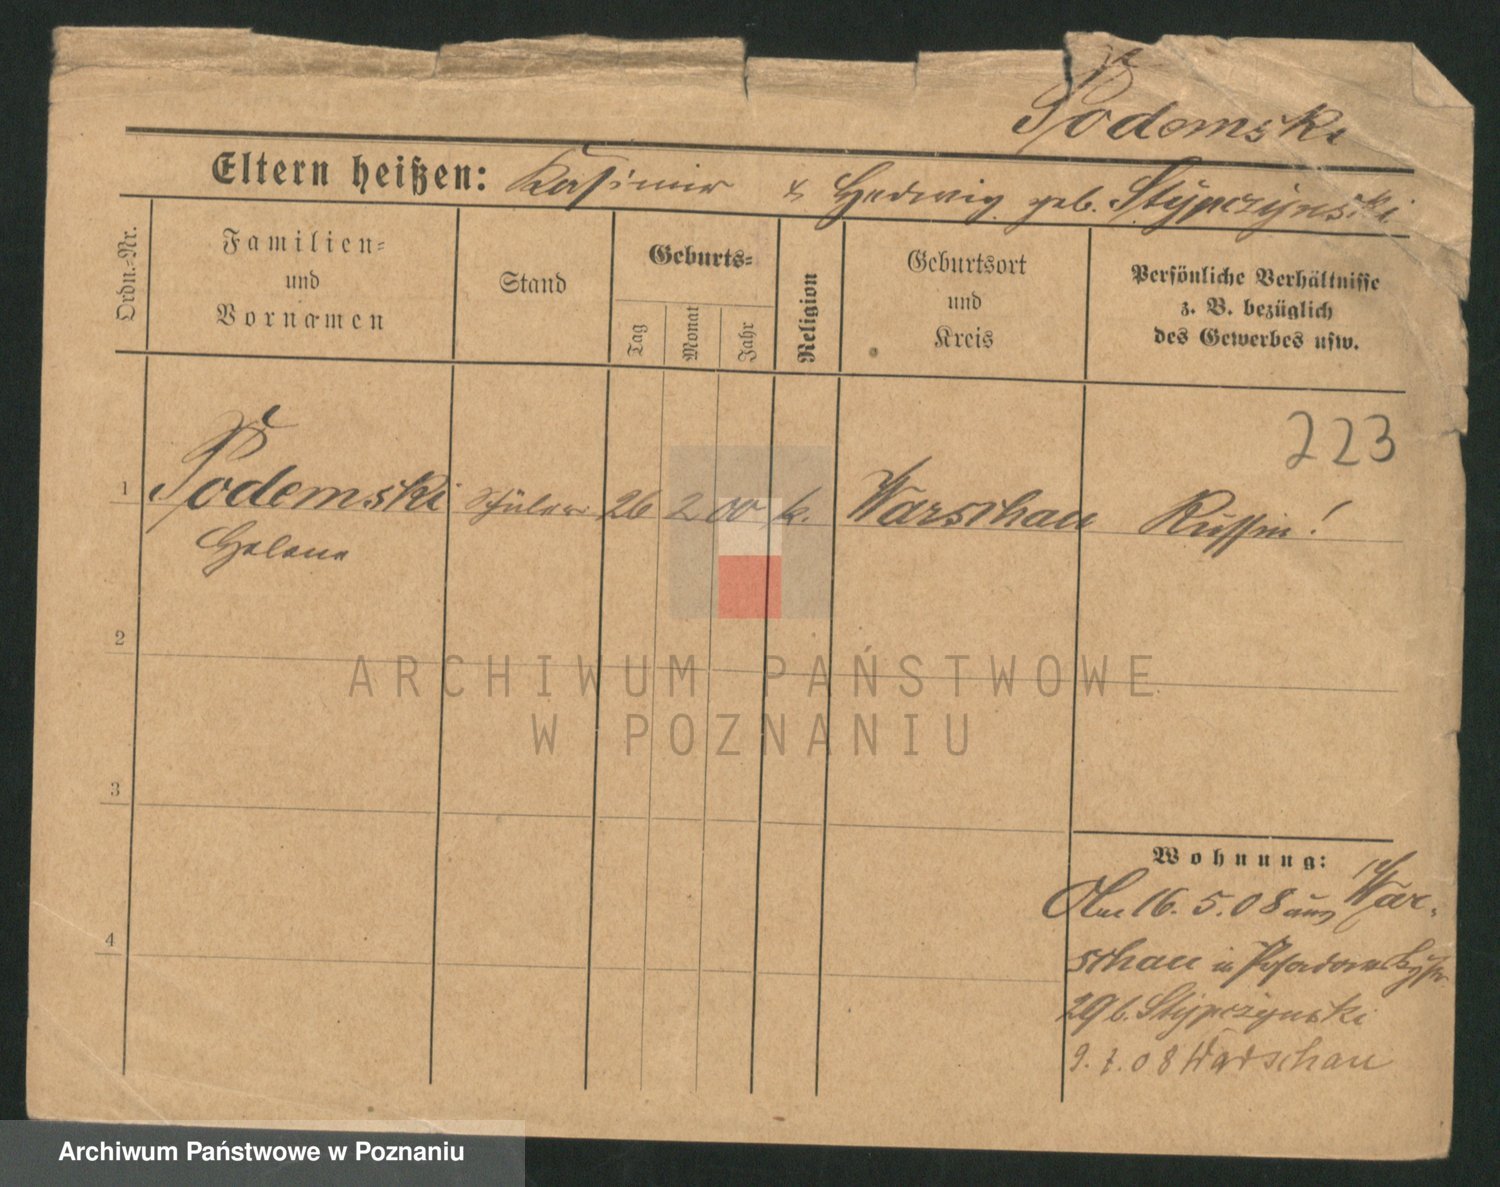 Podemski
Eltern heißen: Kasimir & Hedwig geb. Stypczynski
Ordn.-Nr.
Familien-
und
Vornamen
Stand
Geburts-
Tag
Monat
Jahr
Religion
Geburtsort
und
Kreis
Persönliche Verhältnisse
z. B. bezüglich
des Gewerbes usw.
223
1 Podemski Schülerin 26 2 00 k. Warschau Russin!
Helene
2
ARCHIWUM PAŃSTWOWE
W POZNANIU
3
Wohnung:
16. 5. 08 aus War-
schau
29 b. Stypczynski
9. 7. 08 Warschau
4
Archiwum Państwowe w Poznaniu